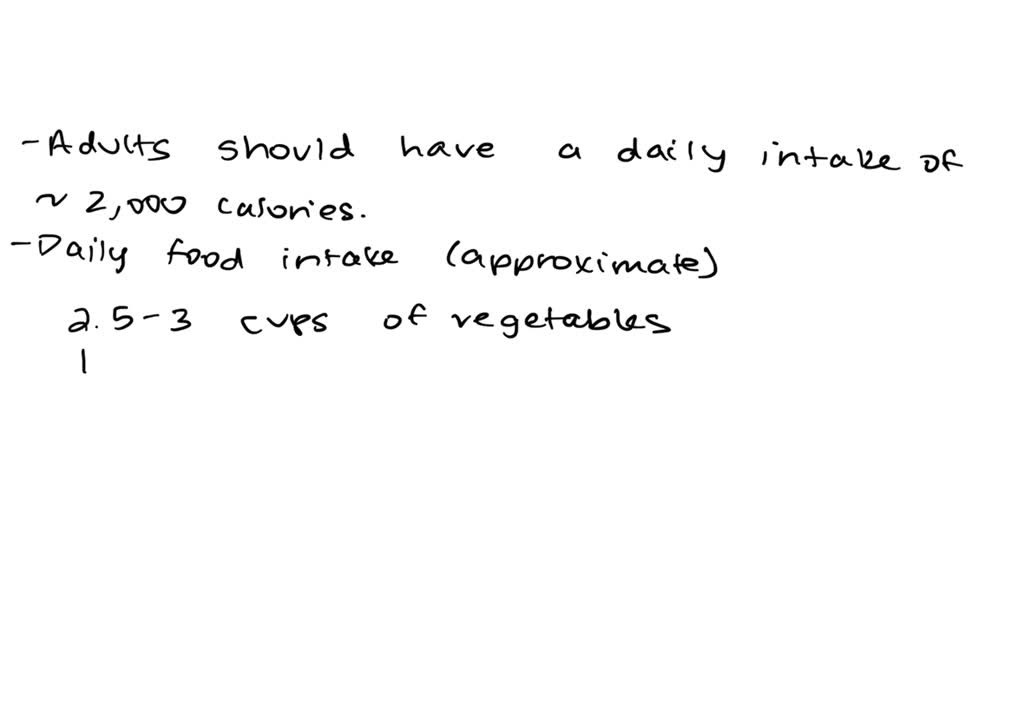 - Adults should have a daily intake of
~ 2,000 calories.
- Daily food intake (approximate)
2.5 - 3 cups of vegetables
1